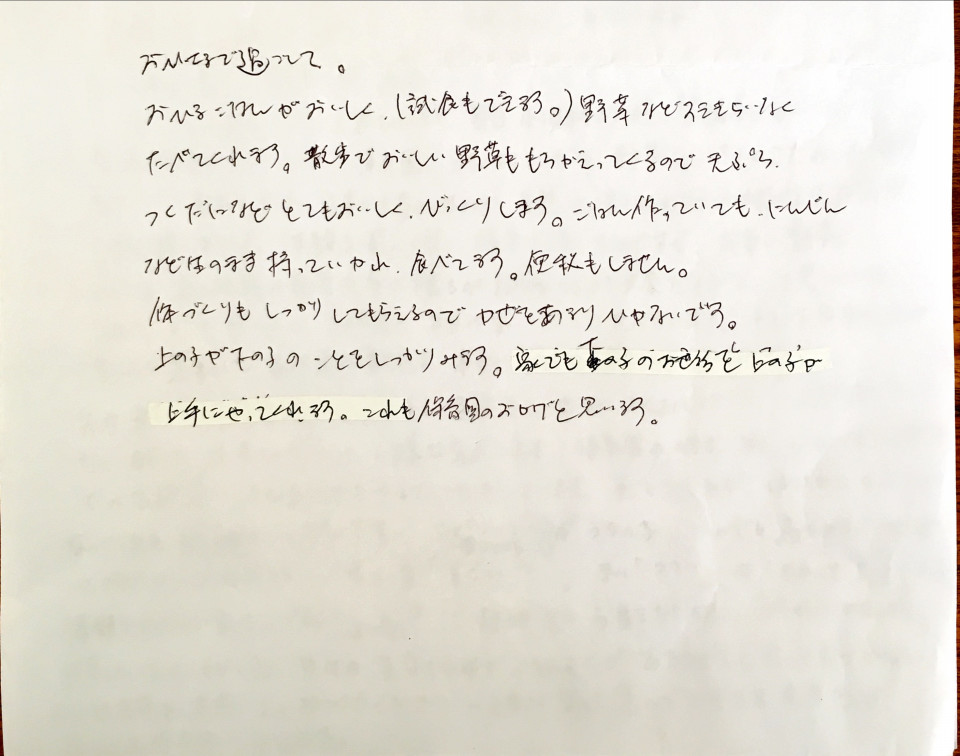 おひさまで過ごして。
おひるごはんがおいしく、(試食もできます。)野草などすききらいなく
たべてくれます。散歩でおいしい野草ももちかえってくるので天ぷら、
つくだになどとてもおいしく、びっくりします。ごはん作っていても、にんじん
などはのまま持っていかれ、食べてます。便秘もしません。
体づくりもしっかりしてもらえるのでかぜをあまりひかないです。
上の子が下の子のことをしっかりみます。家でも下の子のお世話を上の子が
上手にやってくれます。これも保育園のおかげと思います。